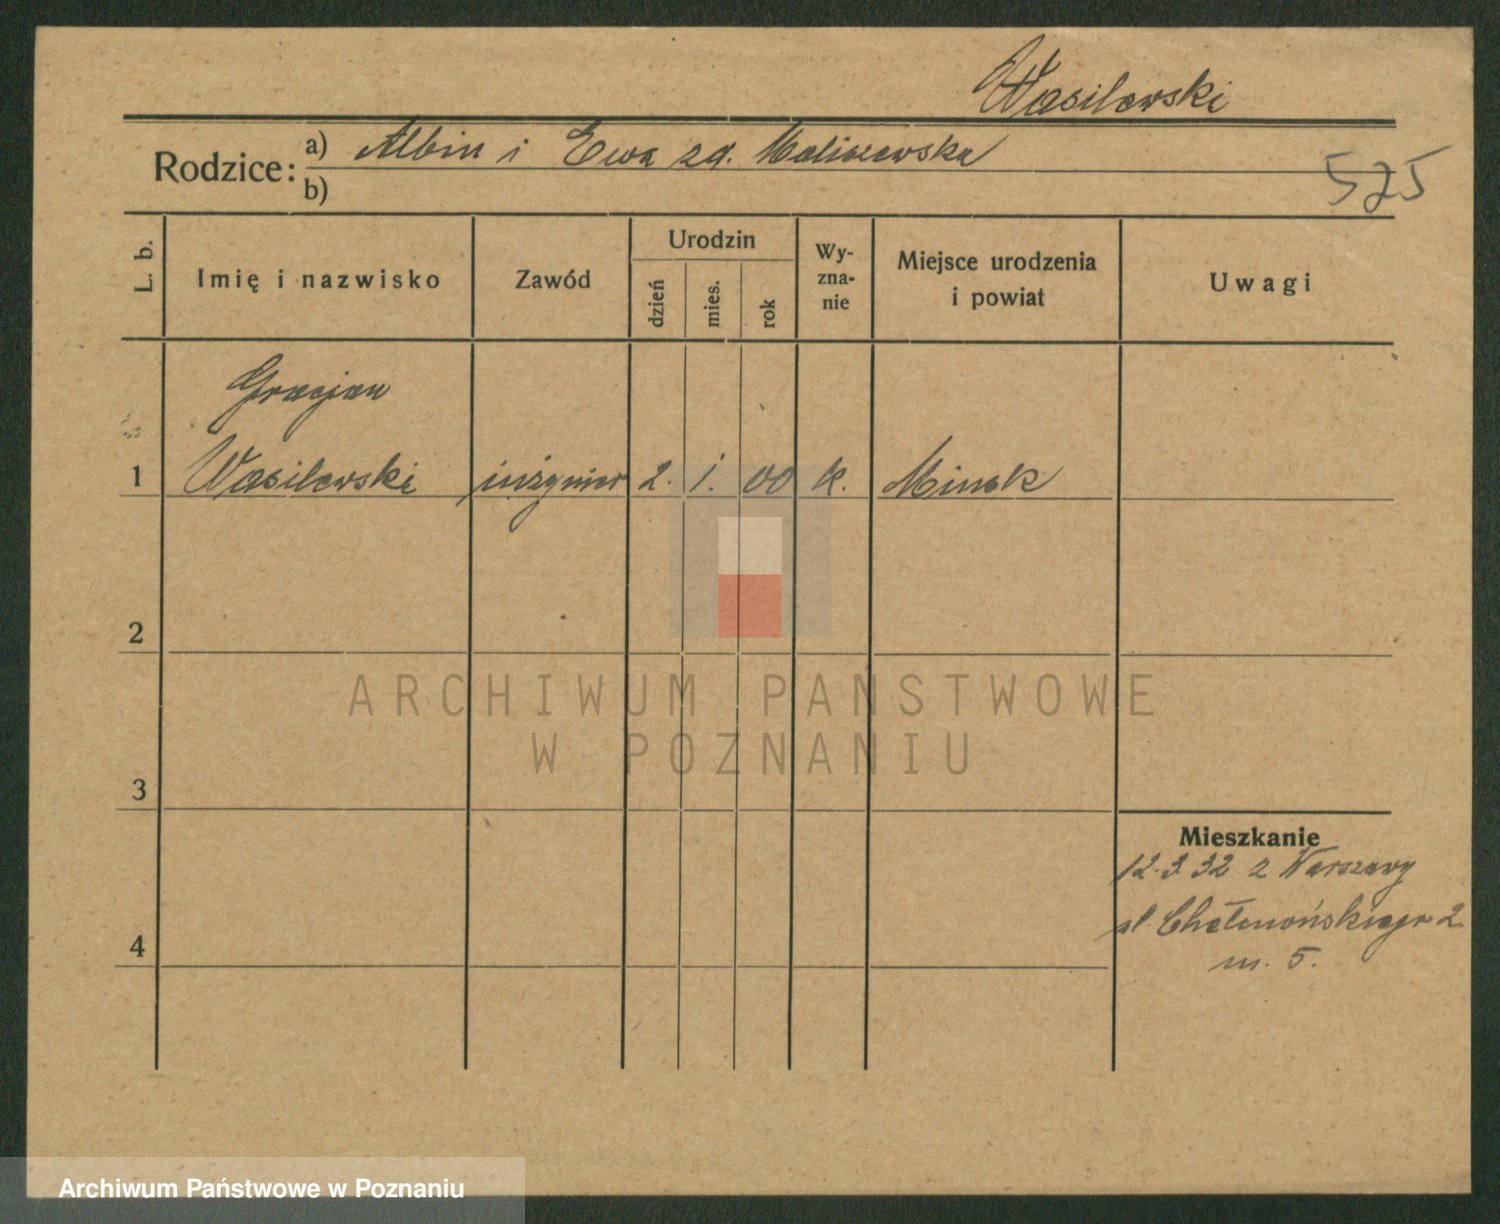 Wasilewski
Rodzice:
a) Albin i Ewa zd. Maliszewska
b)
575
L. b.
Imię i nazwisko
Zawód
Urodzin
dzień
mies.
rok
Wy-
zna-
nie
Miejsce urodzenia
i powiat
Uwagi
Gracjan
1 Wasilewski inżynier 2. 1. 00 k. Minsk
2
3
4
Mieszkanie
12.3.32 z Warszawy
ul. Chełmońskiego 2
m. 5.
ARCHIWUM PAŃSTWOWE
W POZNANIU
Archiwum Państwowe w Poznaniu